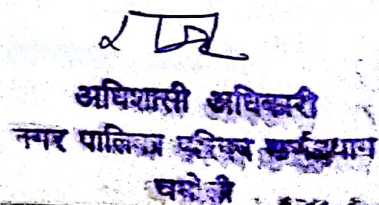 अधिशासी अधिकारी
नगर पालिका परिषद कर्णप्रयाग
चमोली